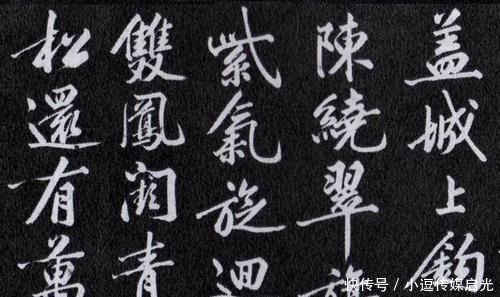 盖城上
陳繞翠
紫氣旋迴
雙鳳闕青
松還有萬
快传号 / 小逗传媒启光